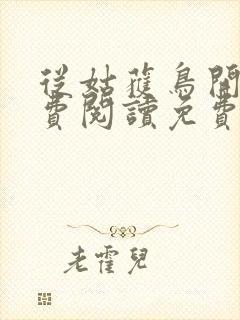 從姑蘇鳥開
費閱讀免費
老霍兒